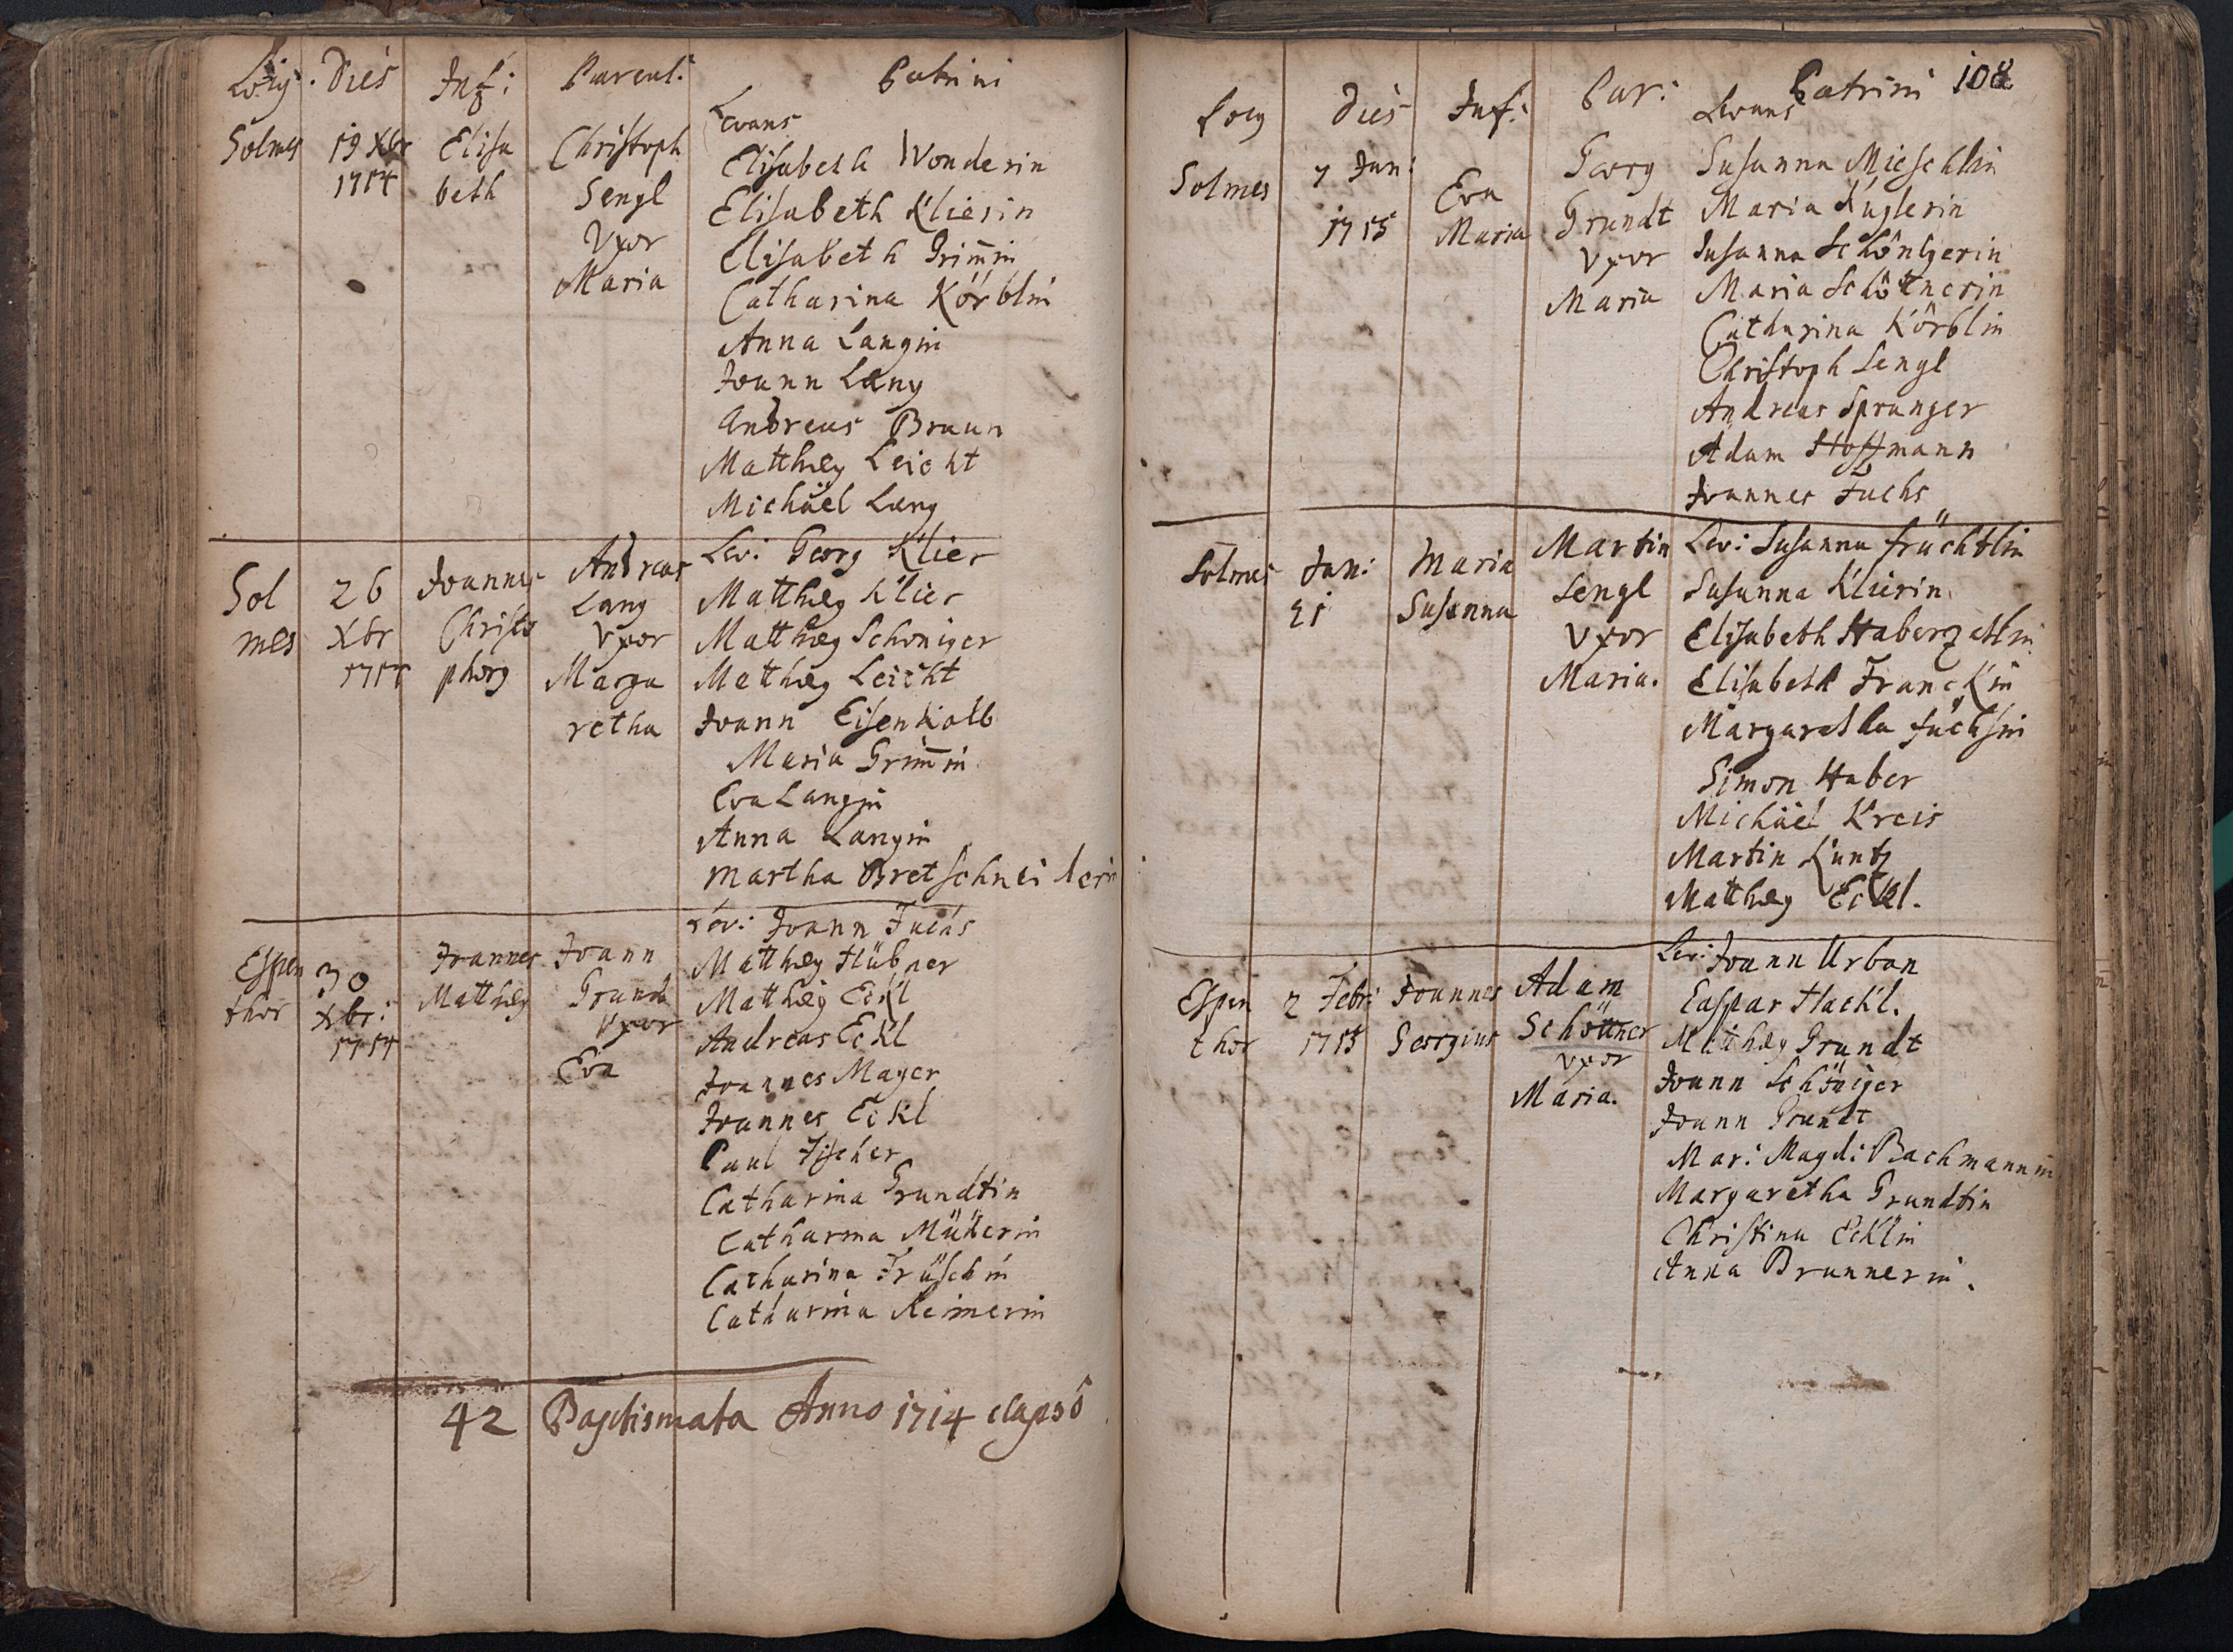 Locus. Dies Inf: Parent: Patrini
Levans
Solmes 19 Xbr 1714 Elisa beth Christoph Sengl Vxor Maria
Elisabeth Wonderin
Elisabeth Klierin
Elisabeth Grim̄in
Catharina Körblin
Anna Langin
Joann Lang
Andreas Braun
Matthæg Leicht
Michäel Lang
Sol mes 26 Xbr 1714 Joannes Christo phorg Andreas Lang Vxor Marga retha
Lev: Georg Klier
Matthæg Klier
Matthæg Schoniger
Matthæg Leicht
Joann Eisenkolb
Maria Grim̄in
Eva Langin
Anna Langin
Martha Bretschneiderin
Espen thor 30 Xbr: 1714 Joannes Matthæg Joann Grundt Vxor Eva
Lev: Joann Fuchs
Matthæg Hübner
Matthæg Eckl
Andreas Eckl
Joannes Mayer
Joannes Eckl
Paul Fischer
Catharina Grundtin
Catharina Müllerin
Catharina Früschin
Catharina Reimerin
42 Baptismata Anno 1714 elapsô
Locg Dies Inf: Par: Patrini 108
Levans
Solmes 7 Jan: 1715 Eva Maria Georg Grundt Vxor Maria
Susanna Mieschlin
Maria Kuglerin
Susanna Schönigerin
Maria Schöttnerin
Catharina Körblin
Christoph Sengl
Andreas Spranger
Adam Hoffmann
Joannes Fuchs
Solmes Jan: 21 Maria Susanna Martin Sengl Vxor Maria.
Lev: Susanna früchtlin
Susanna Klierin
Elisabeth Haberzetlin
Elisabeth Franckin
Margaretha Füchsin
Simon Huber
Michäel Kreis
Martin Kuntz
Matthæg Eckl.
Espen thor 2 Febr: 1715 Joannes Georgius Adam Schöttner Vxor Maria.
Lev: Joann Urban
Caspar Hackl.
Matthæg Grundt
Joann Schöniger
Joann Grundt
Mar: Magd: Bachmannin
Margaretha Grundtin
Christina Ecklin
Anna Brunnerin.